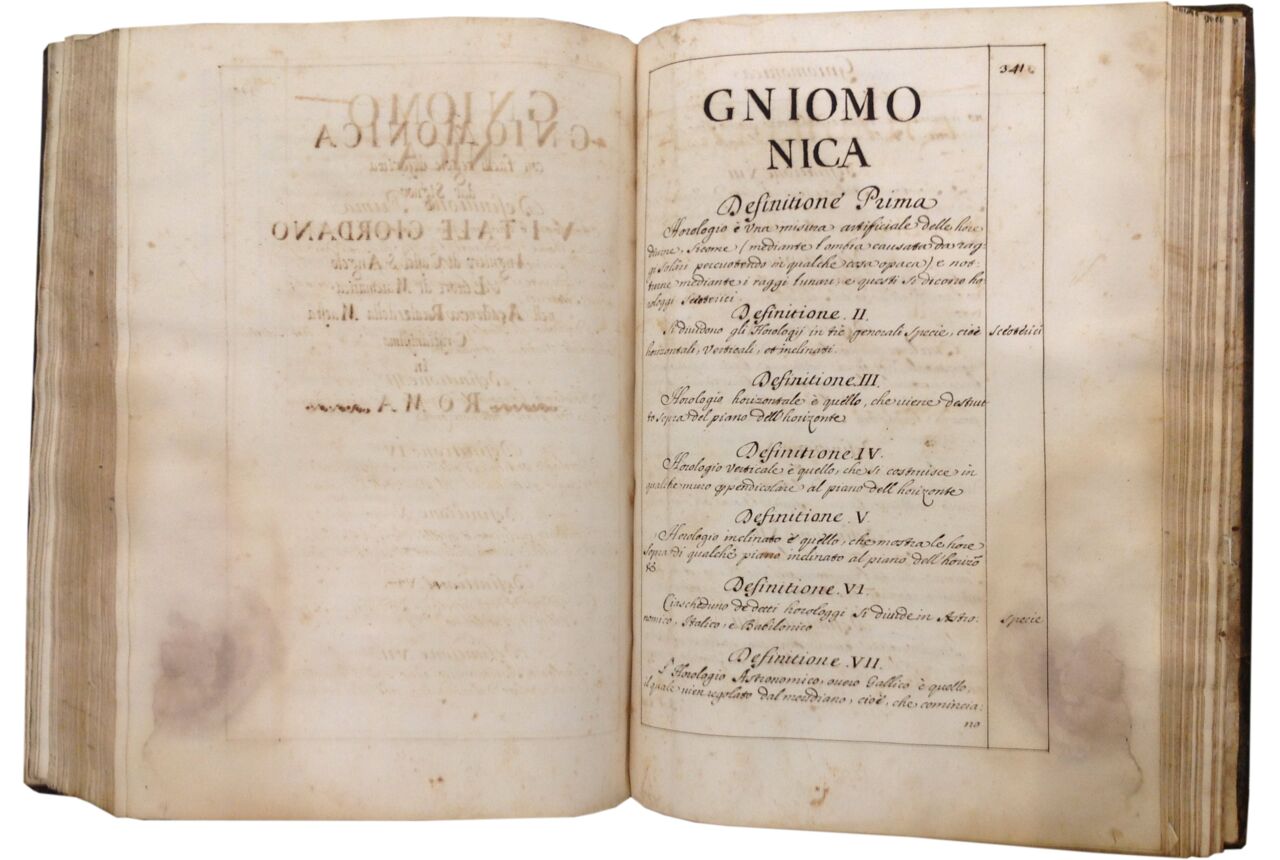 GNIOMO
NICA
con
dal Signor
VITALE GIORDANO
in
ROMA
341
GNIOMO
NICA
Definitione Prima
Horologio è una misura artificiale delle hore
diurne, sicome (mediante l'ombra causata da rag-
gi solari percuotendo in qualche cosa opaca) e not-
turne mediante i raggi lunari, e questi si dicono ho
rologgi sciotterici.
Definitione II.
Si dividono gli Horologij in tre generali specie, cioè
Sciotterici
horizontali, Verticali, et inclinati.
Definitione III.
Horologio horizontale è quello, che viene destrut
to sopra del piano dell'horizonte
Definitione IV.
Horologio Verticale è quello, che si costruisce in
qualche muro ppendicolare al piano dell'horizonte
Definitione V.
Horologio inclinato è quello, che mostra le hore
sopra di qualche piano inclinato al piano dell'horizõ
te
Definitione VI.
Ciascheduno de detti horologgi si divide in Astro-
nomico, Italico, e Babilonico
Specie
Definitione VII.
L'Horologio Astronomico, overo Gallico è quello,
il quale vien regolato dal meridiano, cioè, che comincia-
no